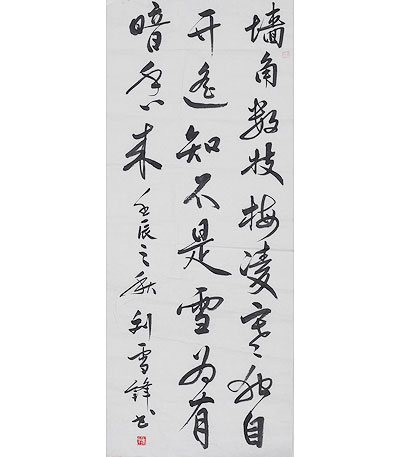 墙角数枝梅凌寒独自
开遥知不是雪为有
暗香来 壬辰之秋 刘雪锋书